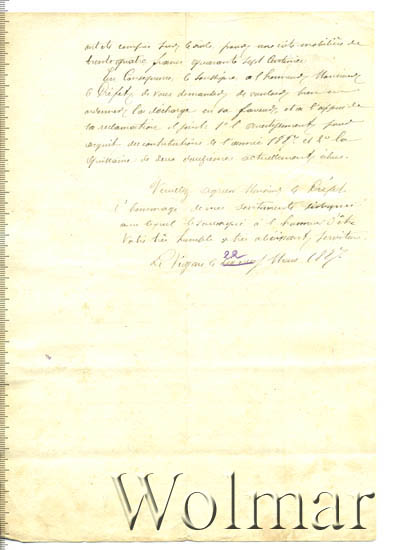 ont été compris sur le rôle pour une cote mobilière de
trente quatre francs quarante sept centimes
En conséquence, le soussigné a l'honneur, Monsieur
le Préfet, de vous demander, de vouloir bien en
la décharge en sa faveur, et à l'appui de
sa réclamation il joint 1° l'avertissement pour
acquit des contributions de l'année 1887 et 2° la
quittance de deux douzièmes actuellement échus.
Veuillez agréer Monsieur le Préfet
l'hommage de mes sentiments
avec lequel le soussigné a l'honneur d'être
Votre très humble & très obéissant serviteur.
Le Vigan le 22 Mars 1887
Wolmar